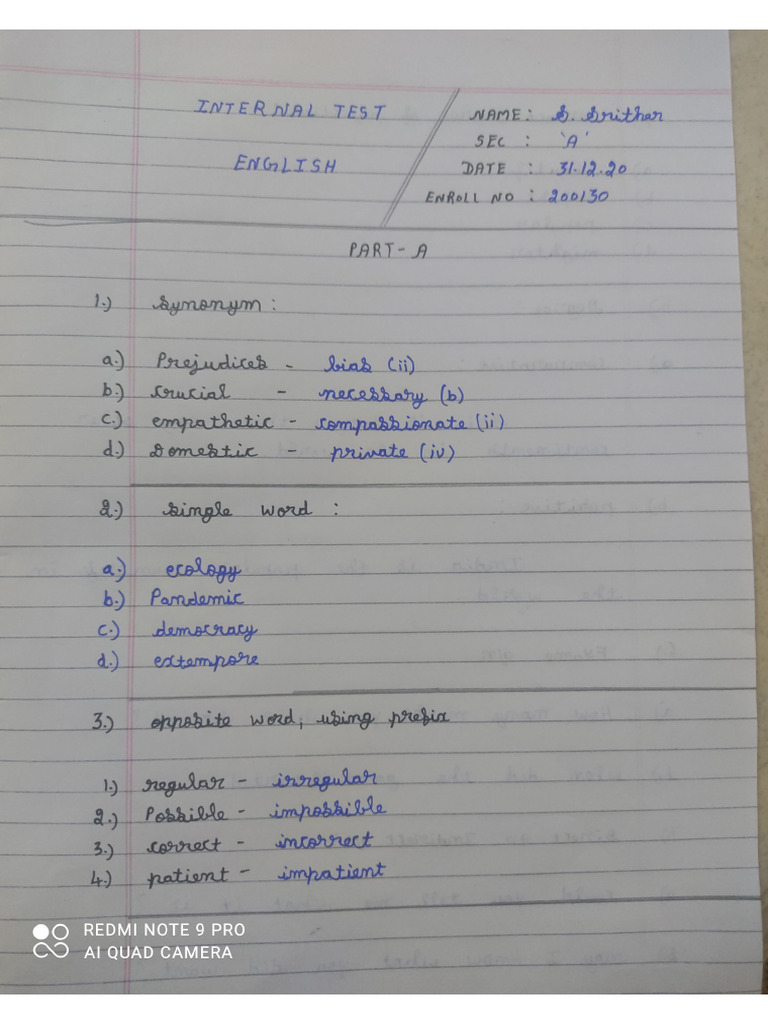 INTERNAL TEST
ENGLISH
NAME : S. Srither
SEC : 'A'
DATE : 31.12.20
ENROLL NO : 200130
PART-A
1.) synonym :
a.) Prejudices - bias (ii)
b.) crucial - necessary (b)
c.) empathetic - compassionate (ii)
d.) Domestic - private (iv)
2.) single word :
a.) ecology
b.) Pandemic
c.) democracy
d.) extempore
3.) opposite word, using prefix
1.) regular - irregular
2.) Possible - impossible
3.) correct - incorrect
4.) patient - impatient
REDMI NOTE 9 PRO
AI QUAD CAMERA